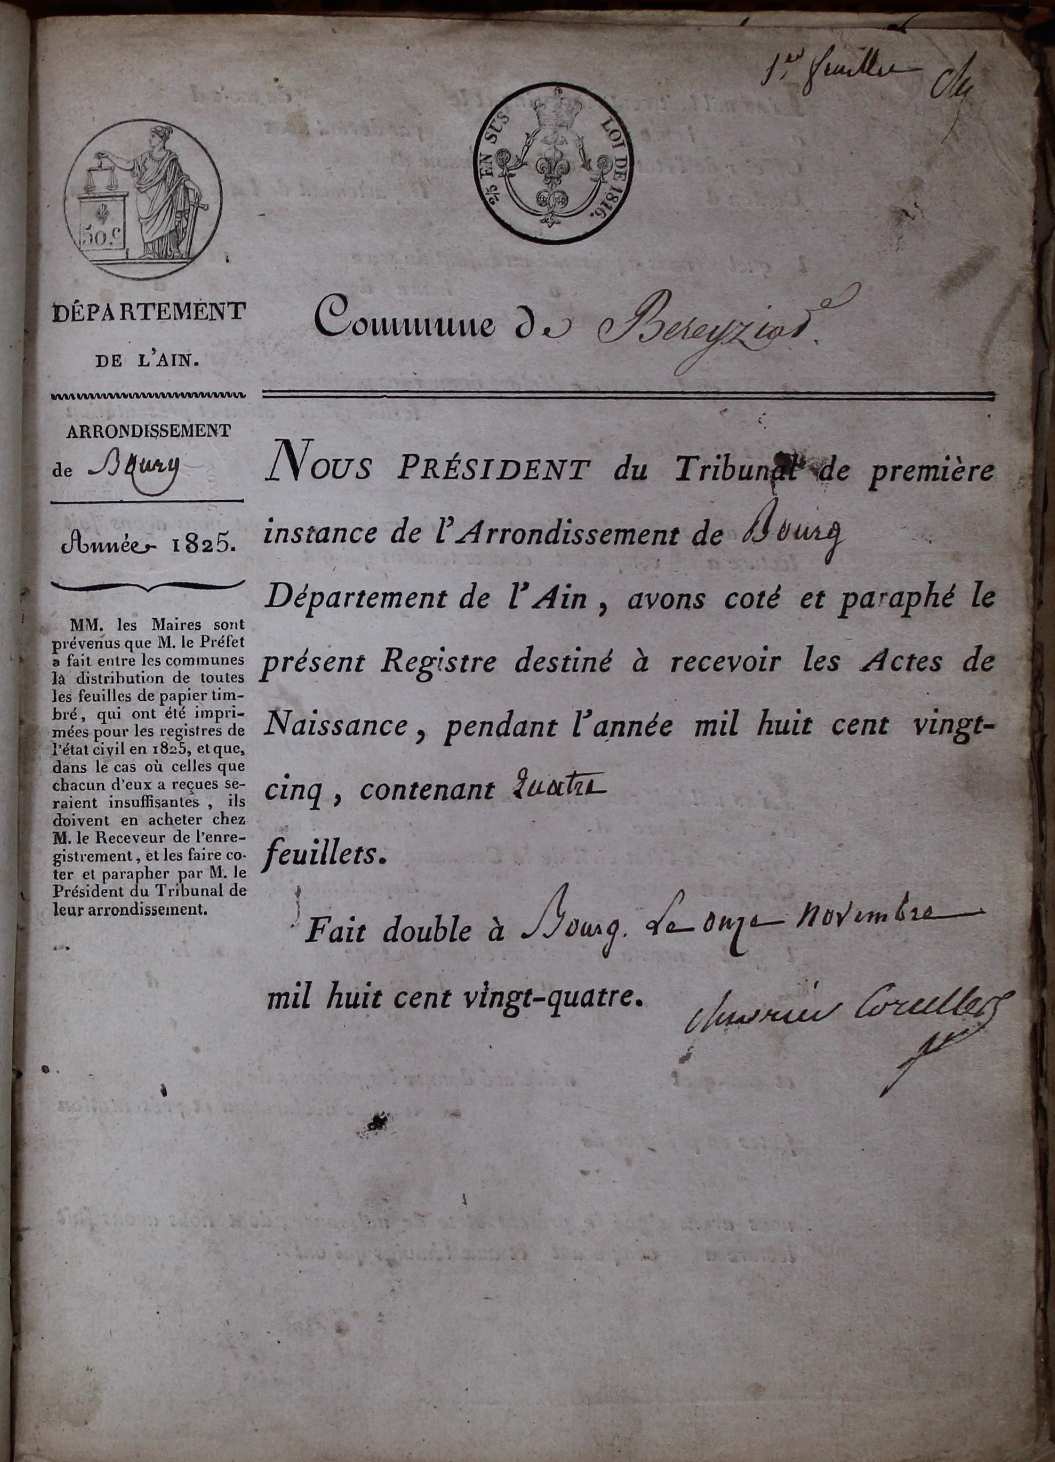 1er feuillet
50 C
2/5 EN SUS
LOI DE 1816.
DÉPARTEMENT
DE L'AIN.
ARRONDISSEMENT
de Bourg
Année 1825.
MM. les Maires sont
prévenus que M. le Préfet
a fait entre les communes
la distribution de toutes
les feuilles de papier tim-
bré, qui ont été impri-
mées pour les registres de
l'état civil en 1825, et que,
dans le cas où celles que
chacun d'eux a reçues se-
raient insuffisantes, ils
doivent en acheter chez
M. le Receveur de l'enre-
gistrement, et les faire co-
ter et parapher par M. le
Président du Tribunal de
leur arrondissement.
Commune de Bereyziat
NOUS PRÉSIDENT du Tribunal de première
instance de l'Arrondissement de Bourg
Département de l'Ain, avons coté et paraphé le
présent Registre destiné à recevoir les Actes de
Naissance, pendant l'année mil huit cent vingt-
cinq, contenant quatre
feuillets.
Fait double à Bourg. Le onze novembre
mil huit cent vingt-quatre.